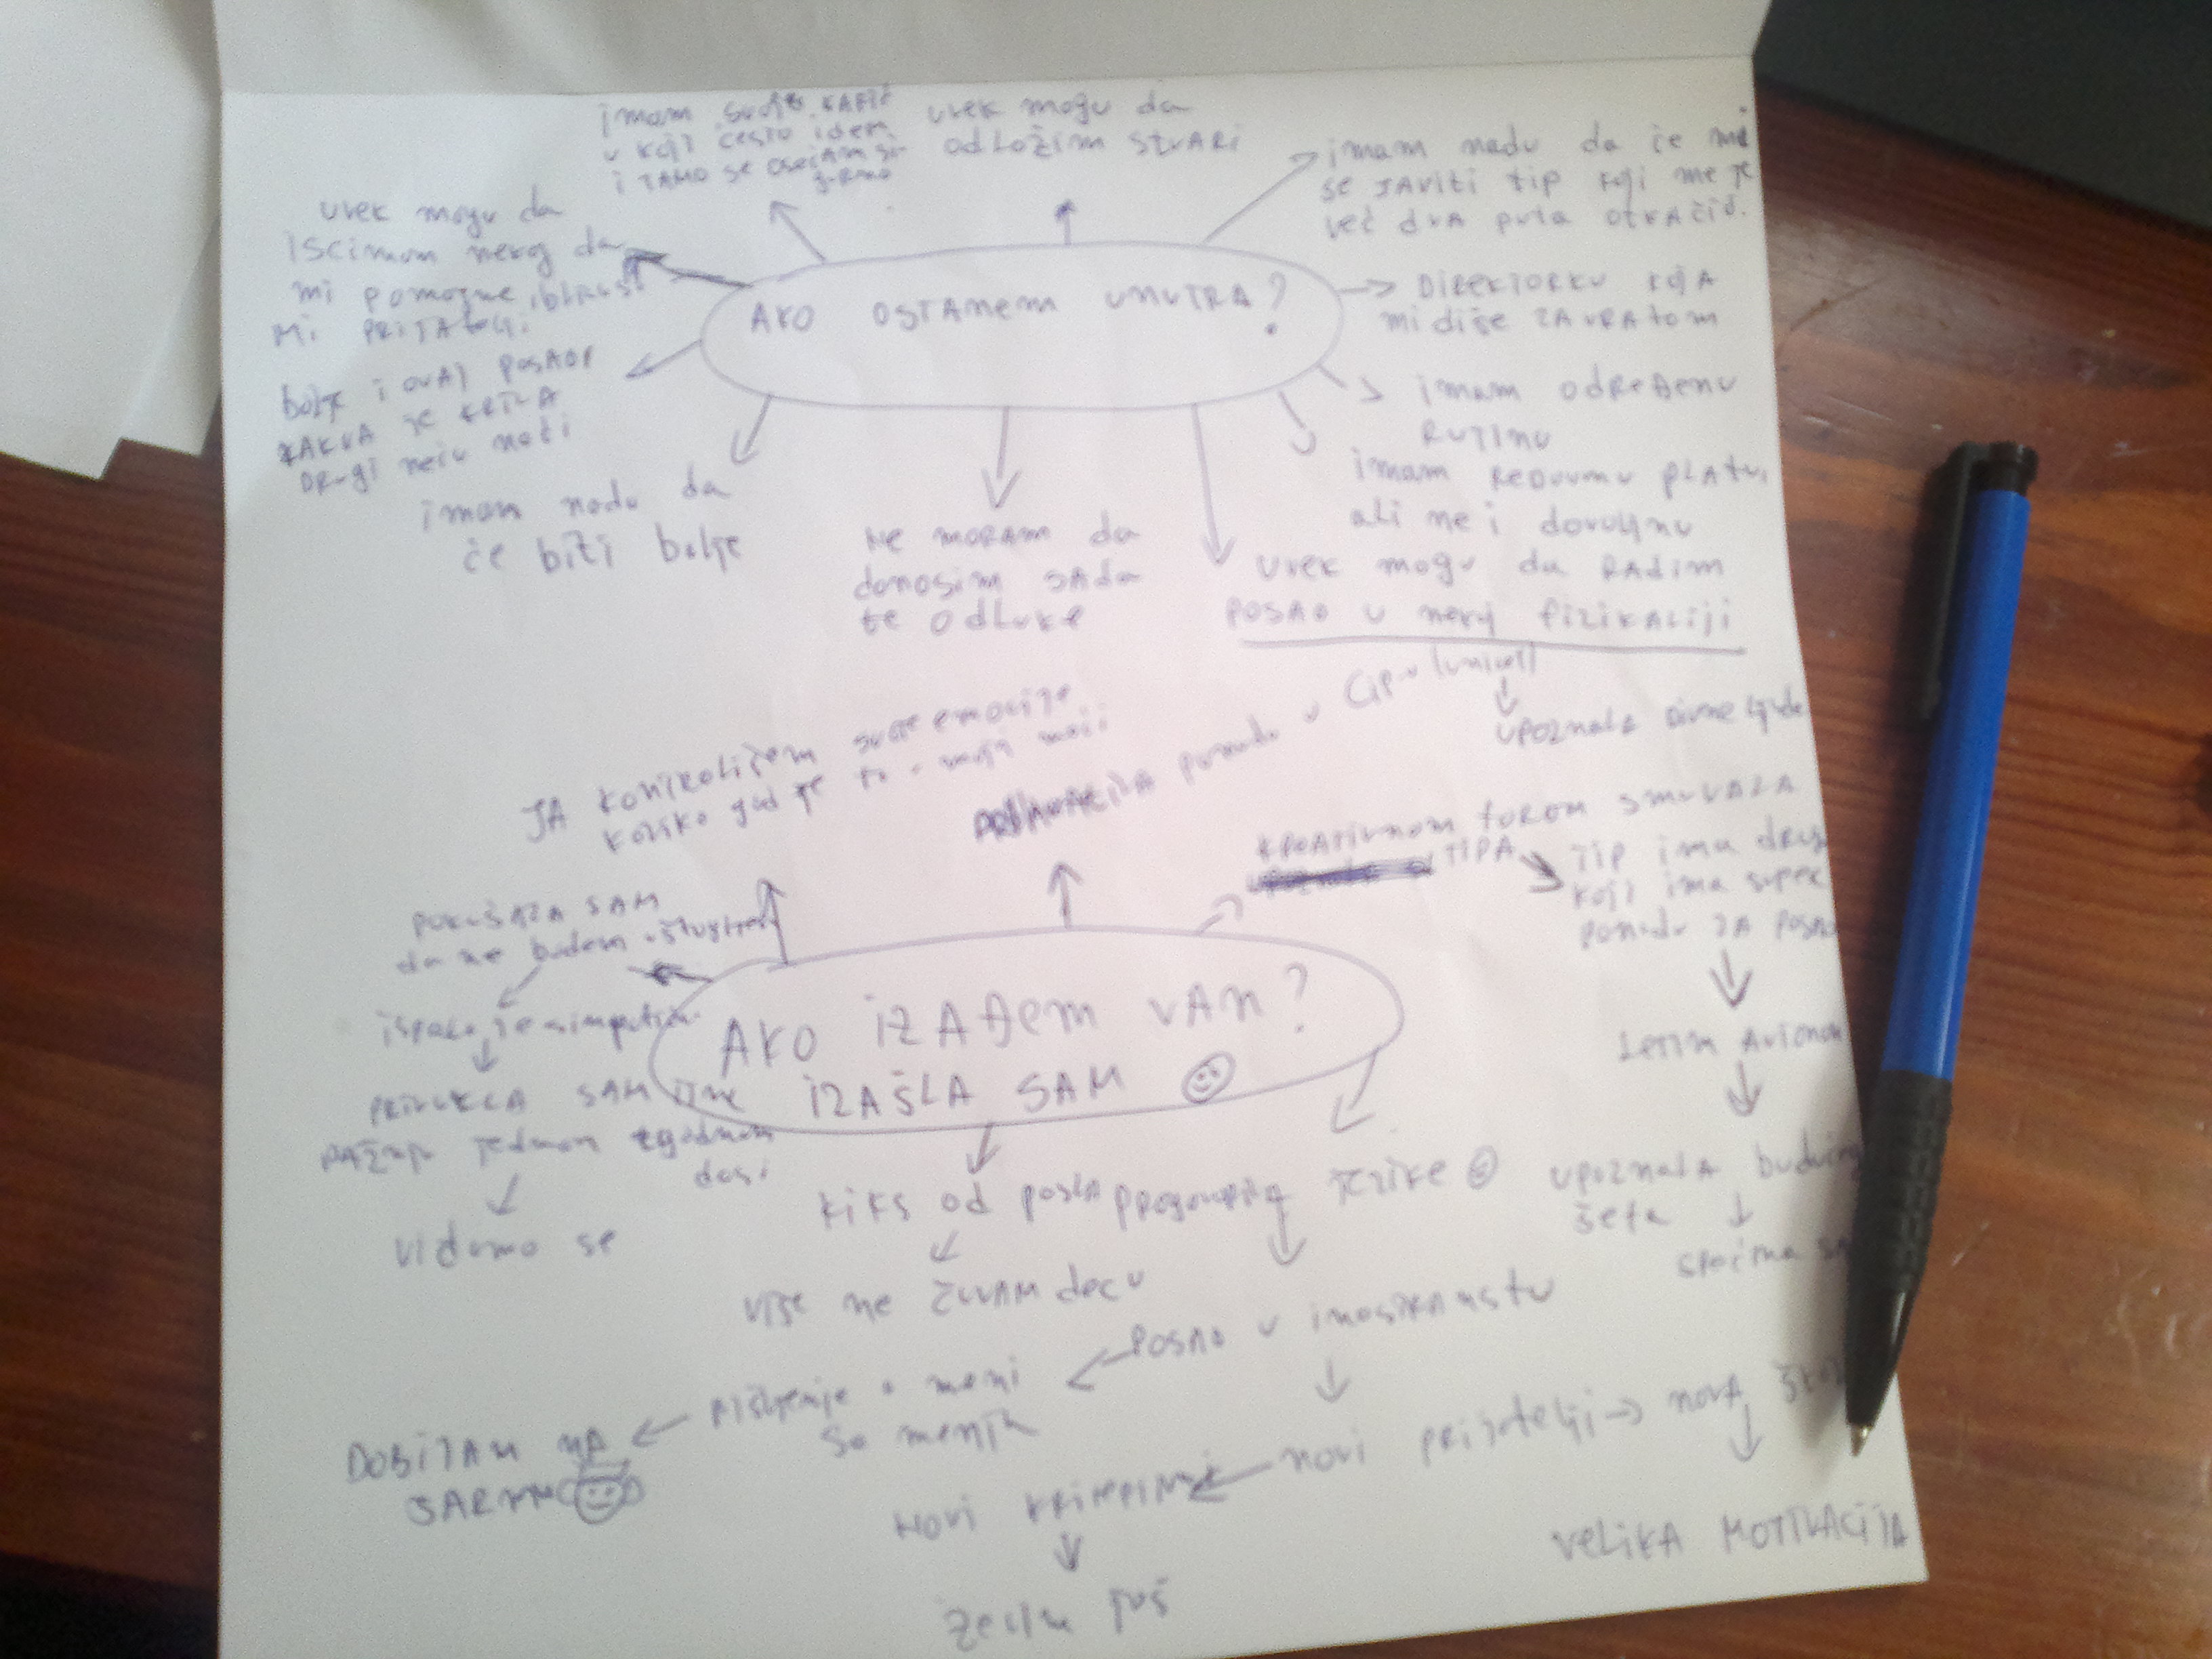 imam svoje kafić
u koji često idem
i tamo se osećam
uvek mogu da
odložim stvari
imam nadu da će mi
se javiti tip koji me je
već dva puta otkačio.
uvek mogu da
iscimam nekog da
mi pomogne, bliski su
mi prijatelji
AKO OSTANEM UNUTRA?
DIREKTORKU KOJA
mi diše ZA VRATOM
bolje i ovaj posao
KAKVA je KRIZA
DRugi neću naći
imam ODREĐenu
RUTINU
imam nadu da
će biti bolje
Ne MORAM da
donosim SAda
te ODLUKE
imam REDOVNU PLATU,
ali ne i dovoljnu
uvek mogu da RADIM
POSAO u nekoj fizikaliji
upoznala divne ljude
JA KONTROLIŠEM svoje emocije
koliko god je to u mojoj moći
ponudu u
KREATIVNOM FOROM SMUVALA
TIPA
TIP ima
koji ima super
ponudu ZA POSAO
POKUŠALA SAM
da ne budem
ispalo je simpatično
PRIVUKLA SAM time
PAŽNJU jednom zgodnom
dasi
vidamo se
AKO IZAĐEM VAN?
IZAŠLA SAM
LETIM AVIONOM
upoznala
šefa
KIKS od posla
PROGOVORILA JEZIKE
VIŠE ne ČUVAM decu
POSAO u inostranstvu
mišljenje o meni
se menja
DOBIJAM NA
ŠARMU
novi prijatelji → nova
NOVI
VELIKA MOTIVACIJA
želim još